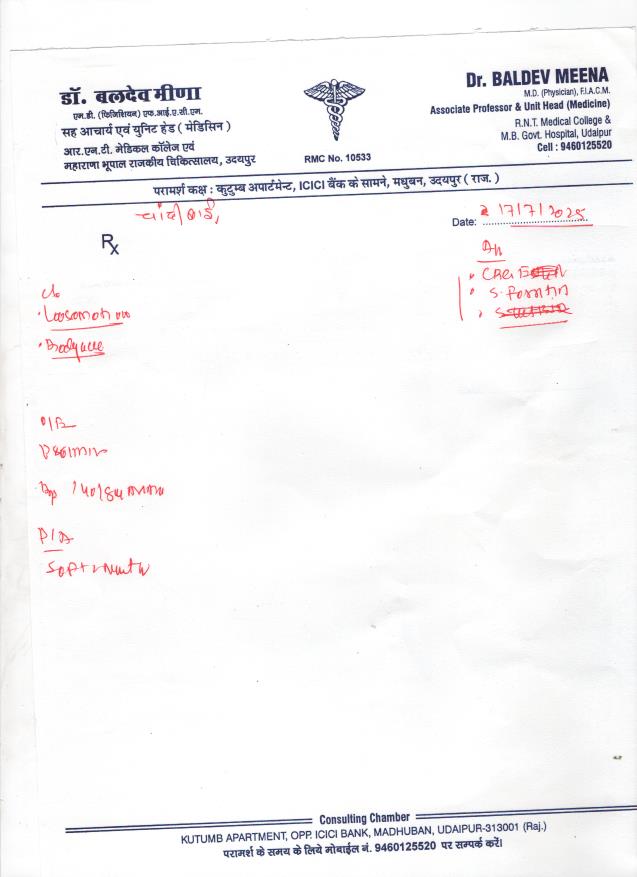 डॉ. बलदेव मीणा
एम.डी. (फिजिशियन) एफ.आई.ए.सी.एम.
सह आचार्य एवं युनिट हेड ( मेडिसिन )
आर.एन.टी. मेडिकल कॉलेज एवं
महाराणा भूपाल राजकीय चिकित्सालय, उदयपुर
RMC No. 10533
Dr. BALDEV MEENA
M.D. (Physician), F.I.A.C.M.
Associate Professor & Unit Head (Medicine)
R.N.T. Medical College &
M.B. Govt. Hospital, Udaipur
Cell : 9460125520
परामर्श कक्ष : कुटुम्ब अपार्टमेन्ट, ICICI बैंक के सामने, मधुबन, उदयपुर ( राज. )
Date: 17/7/2025
Rx
c/o
O/E
BP 140/84
P/A
Consulting Chamber
KUTUMB APARTMENT, OPP. ICICI BANK, MADHUBAN, UDAIPUR-313001 (Raj.)
परामर्श के समय के लिये मोबाईल नं. 9460125520 पर सम्पर्क करें।